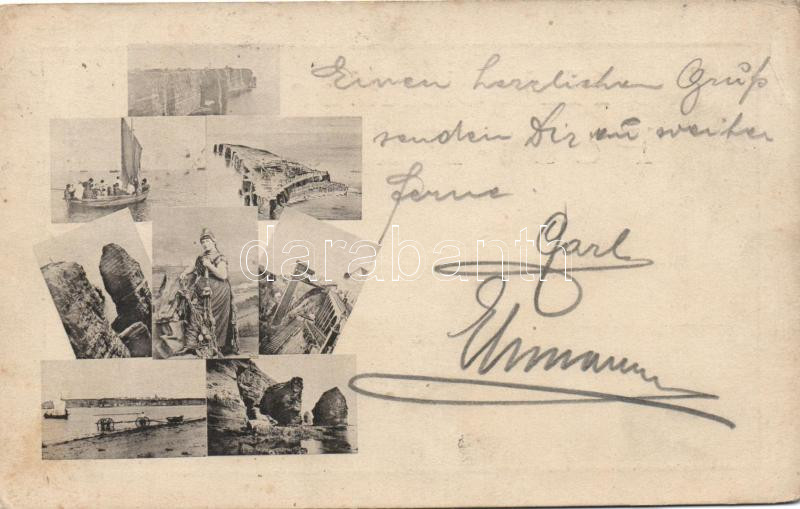 Einen herzlichen Gruß
senden Dir zu weiter
ferne.
Carl
darabanth.com